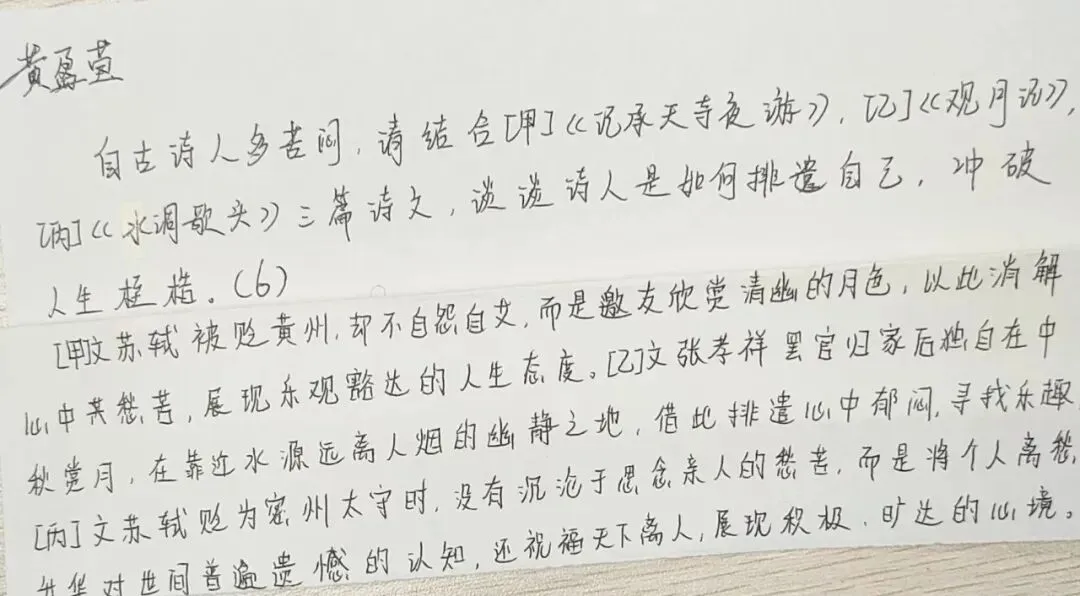 黄盈萱
自古诗人多苦闷,请结合[甲]《记承天寺夜游》,[乙]《观月记》,
[丙]《水调歌头》三篇诗文,谈谈诗人是如何排遣自己,冲破
人生桎梏。(6)
[甲]文苏轼被贬黄州,却不自怨自艾,而是邀友欣赏清幽的月色,以此消解
心中共愁苦,展现乐观豁达的人生态度。[乙]文张孝祥罢官归家后独自在中
秋赏月,在靠近水源远离人烟的幽静之地,借此排遣心中郁闷,寻找乐趣
[丙]文苏轼贬为密州太守时,没有沉沦于思念亲人的愁苦,而是将个人离愁
升华对世间普遍遗憾的认知,还祝福天下离人,展现积极、旷达的心境。